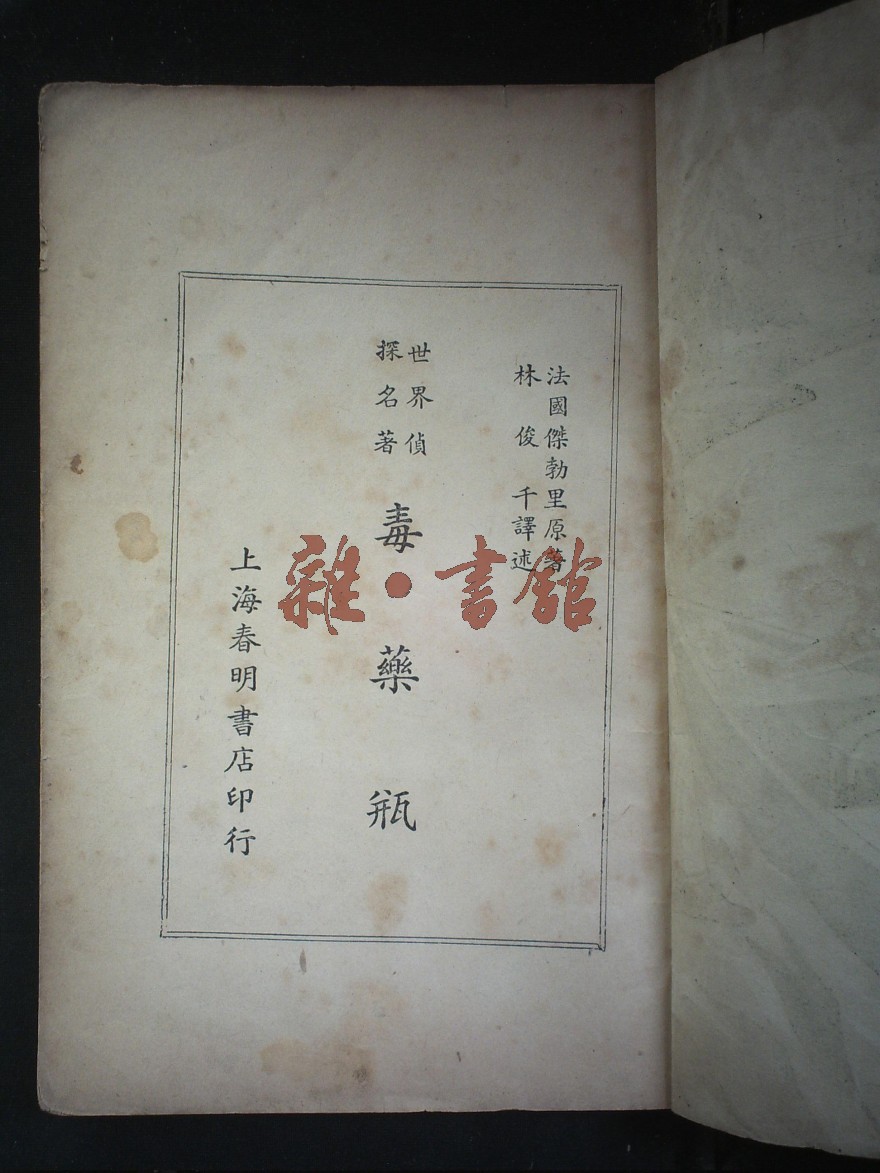 法國傑勃里原著
林俊千譯述
世界偵
探名著
毒藥瓶
上海春明書店印行
雜·書館